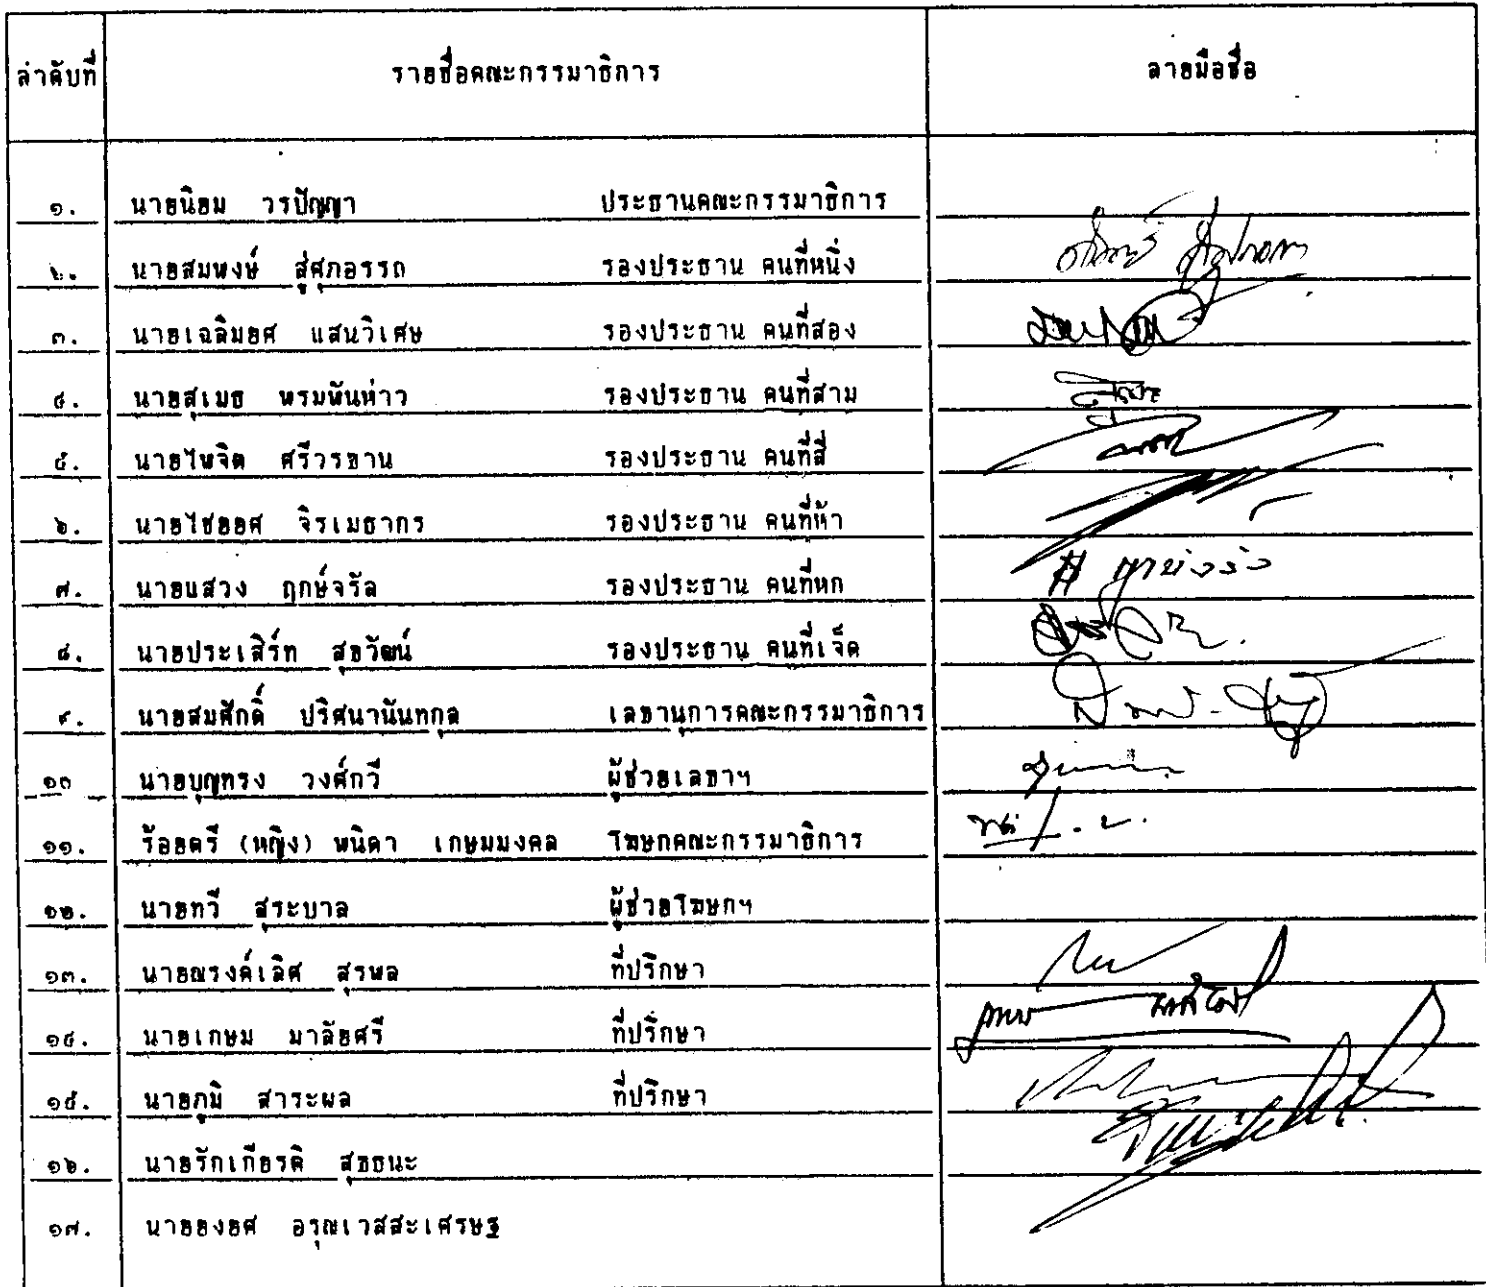 ลำดับที่ รายชื่อคณะกรรมาธิการ ลายมือชื่อ
๑. นายนิยม วรปัญญา ประธานคณะกรรมาธิการ
๒. นายสมพงษ์ สู่ศุภอรรถ รองประธาน คนที่หนึ่ง
๓. นายเฉลิมยศ แสนวิเศษ รองประธาน คนที่สอง
๔. นายสุเมธ พรมพันห่าว รองประธาน คนที่สาม
๕. นายไพจิต ศรีวรขาน รองประธาน คนที่สี่
๖. นายไชยยศ จิรเมธากร รองประธาน คนที่ห้า
๗. นายแสวง ฤกษ์จรัล รองประธาน คนที่หก
๘. นายประเสิร์ท สุขวัฒน์ รองประธาน คนที่เจ็ด
๙. นายสมศักดิ์ ปริศนานันทกุล เลขานุการคณะกรรมาธิการ
๑๐ นายบุญทรง วงศ์กวี ผู้ช่วยเลขาฯ
๑๑. ร้อยตรี (หญิง) พนิดา เกษมมงคล โฆษกคณะกรรมาธิการ
๑๒. นายทวี สุระบาล ผู้ช่วยโฆษกฯ
๑๓. นายณรงค์เลิศ สุรพล ที่ปรึกษา
๑๔. นายเกษม มาลัยศรี ที่ปรึกษา
๑๕. นายภูมิ สาระผล ที่ปรึกษา
๑๖. นายรักเกียรติ สุขธนะ
๑๗. นายยงยศ อรุณเวสสะเศรษฐ